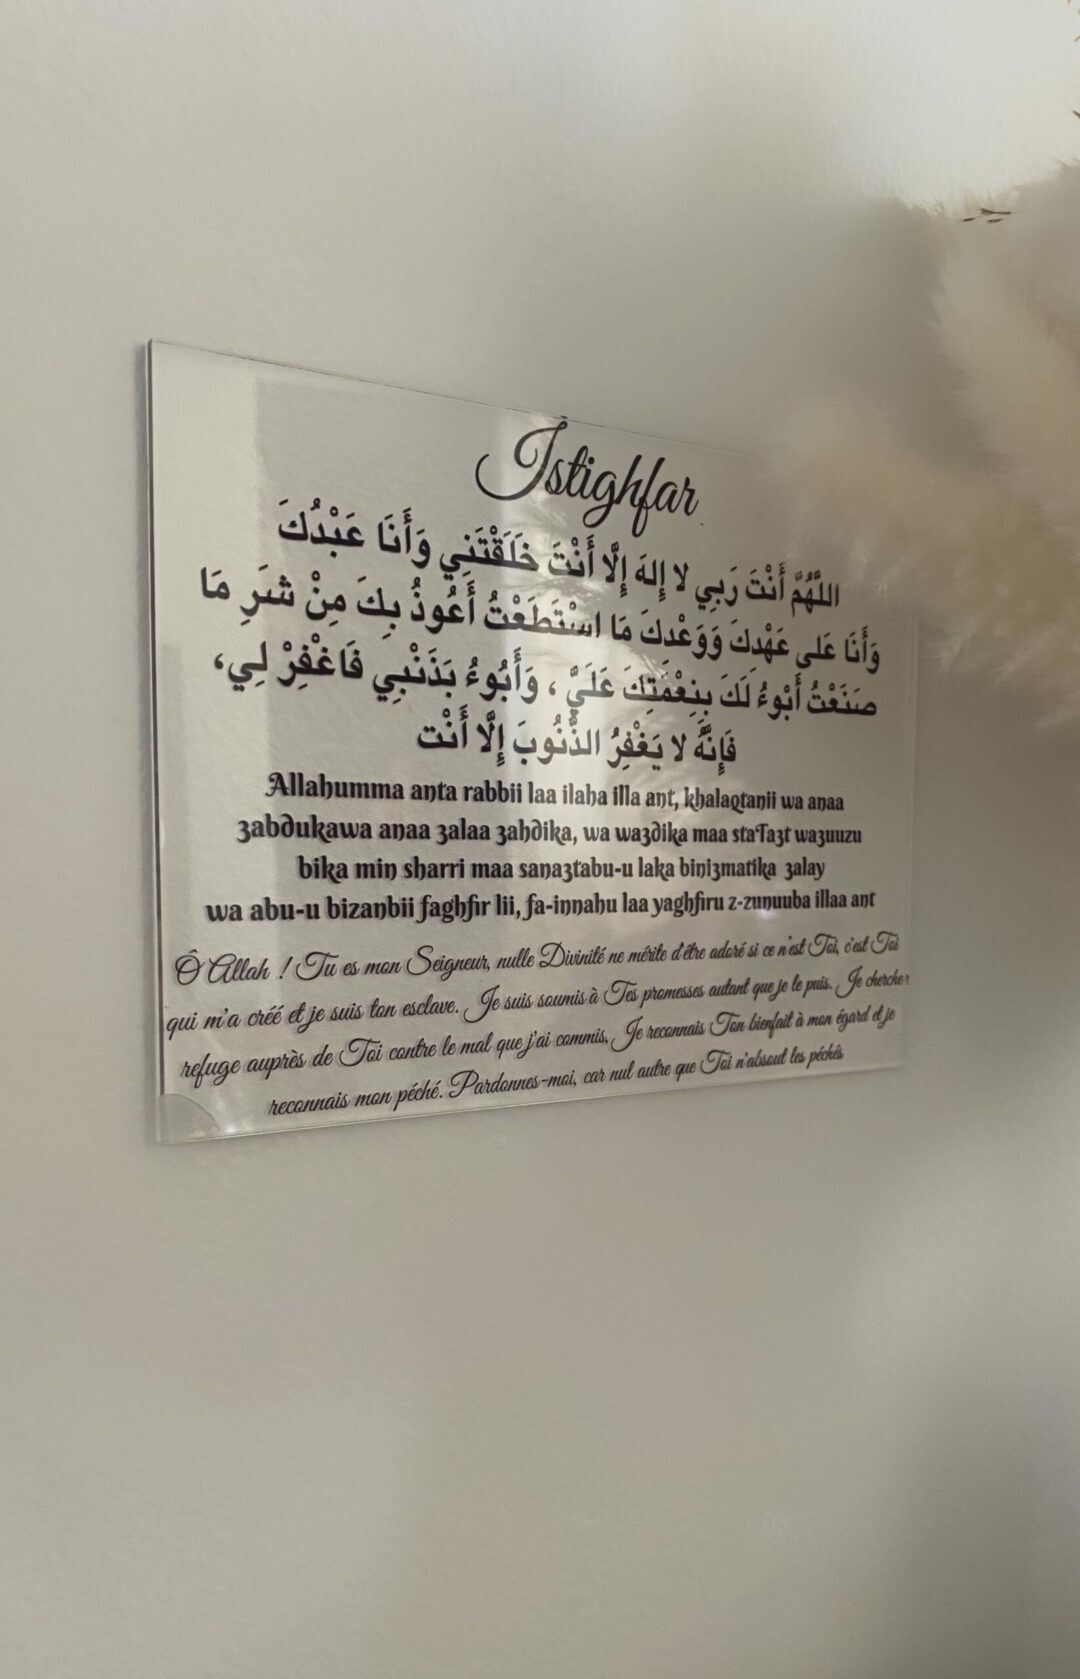 Istighfar
اللَّهُمَّ أَنْتَ رَبِي لا إِلهَ إِلَّا أَنْتَ خَلَقْتَنِي وَأَنَا عَبْدُكَ
وَأَنَا عَلى عَهْدِكَ وَوَعْدِكَ مَا اسْتَطَعْتُ أَعُوذُ بِكَ مِنْ شَرِ مَا
صَنَعْتُ أَبْوءُ لَكَ بِنِعْمَتِكَ عَلَيَّ ، وَأَبُوءُ بَذَنْبِي فَاغْفِرْ لِي،
فَإِنَّهُ لا يَغْفِرُ الذُّنُوبَ إِلَّا أَنْت
Allahumma anta rabbii laa ilaha illa ant, khalaqtanii wa anaa
3abdukawa anaa 3alaa 3ahdika, wa wa3dika maa staTa3t wa3uuzu
bika min sharri maa sana3tabu-u laka bini3matika 3alay
wa abu-u bizanbii faghfir lii, fa-innahu laa yaghfiru z-zunuuba illaa ant
Ô Allah ! Tu es mon Seigneur, nulle Divinité ne mérite d'être adoré si ce n'est Toi, c'est Toi
qui m'a créé et je suis ton esclave. Je suis soumis à Tes promesses autant que je le puis. Je cherche
refuge auprès de Toi contre le mal que j'ai commis, Je reconnais Ton bienfait à mon égard et je
reconnais mon péché. Pardonnes-moi, car nul autre que Toi n'absout les péchés